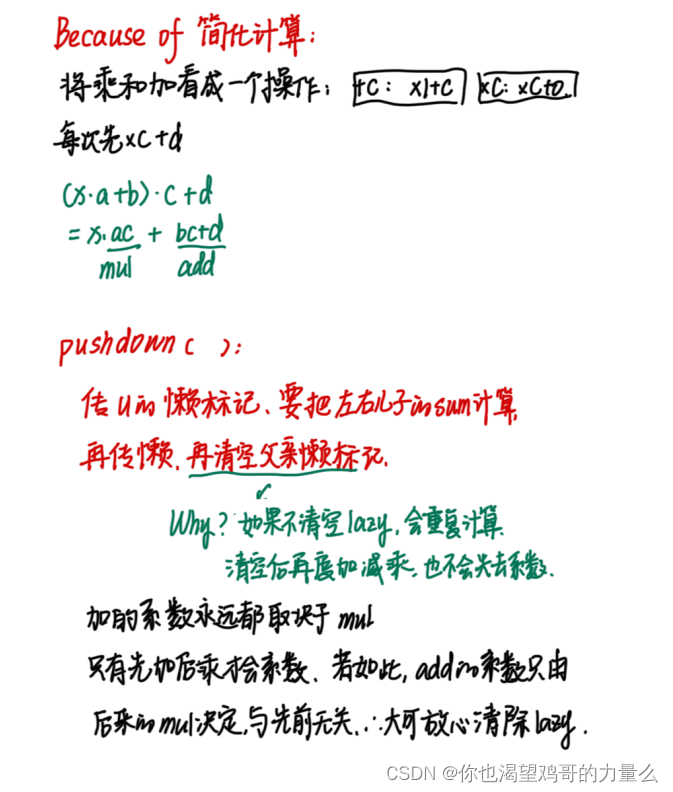 Because of 简化计算:
将乘和加看成一个操作: +C: ×1+C ×C: ×C+0.
每次先×C+d
(x·a+b)·c+d
=x·ac + bc+d
mul add
pushdown( ):
传u的懒标记、要把左右儿子的sum计算,
再传懒、再清空父亲懒标记.
Why? 如果不清空lazy,会重复计算.
清空后再度加减乘,也不会失去系数.
加的系数永远都取决于mul
只有先加后乘才会系数、若如此,add的系数只由
后来的mul决定,与先前无关.∴大可放心清除lazy.
CSDN @你也渴望鸡哥的力量么